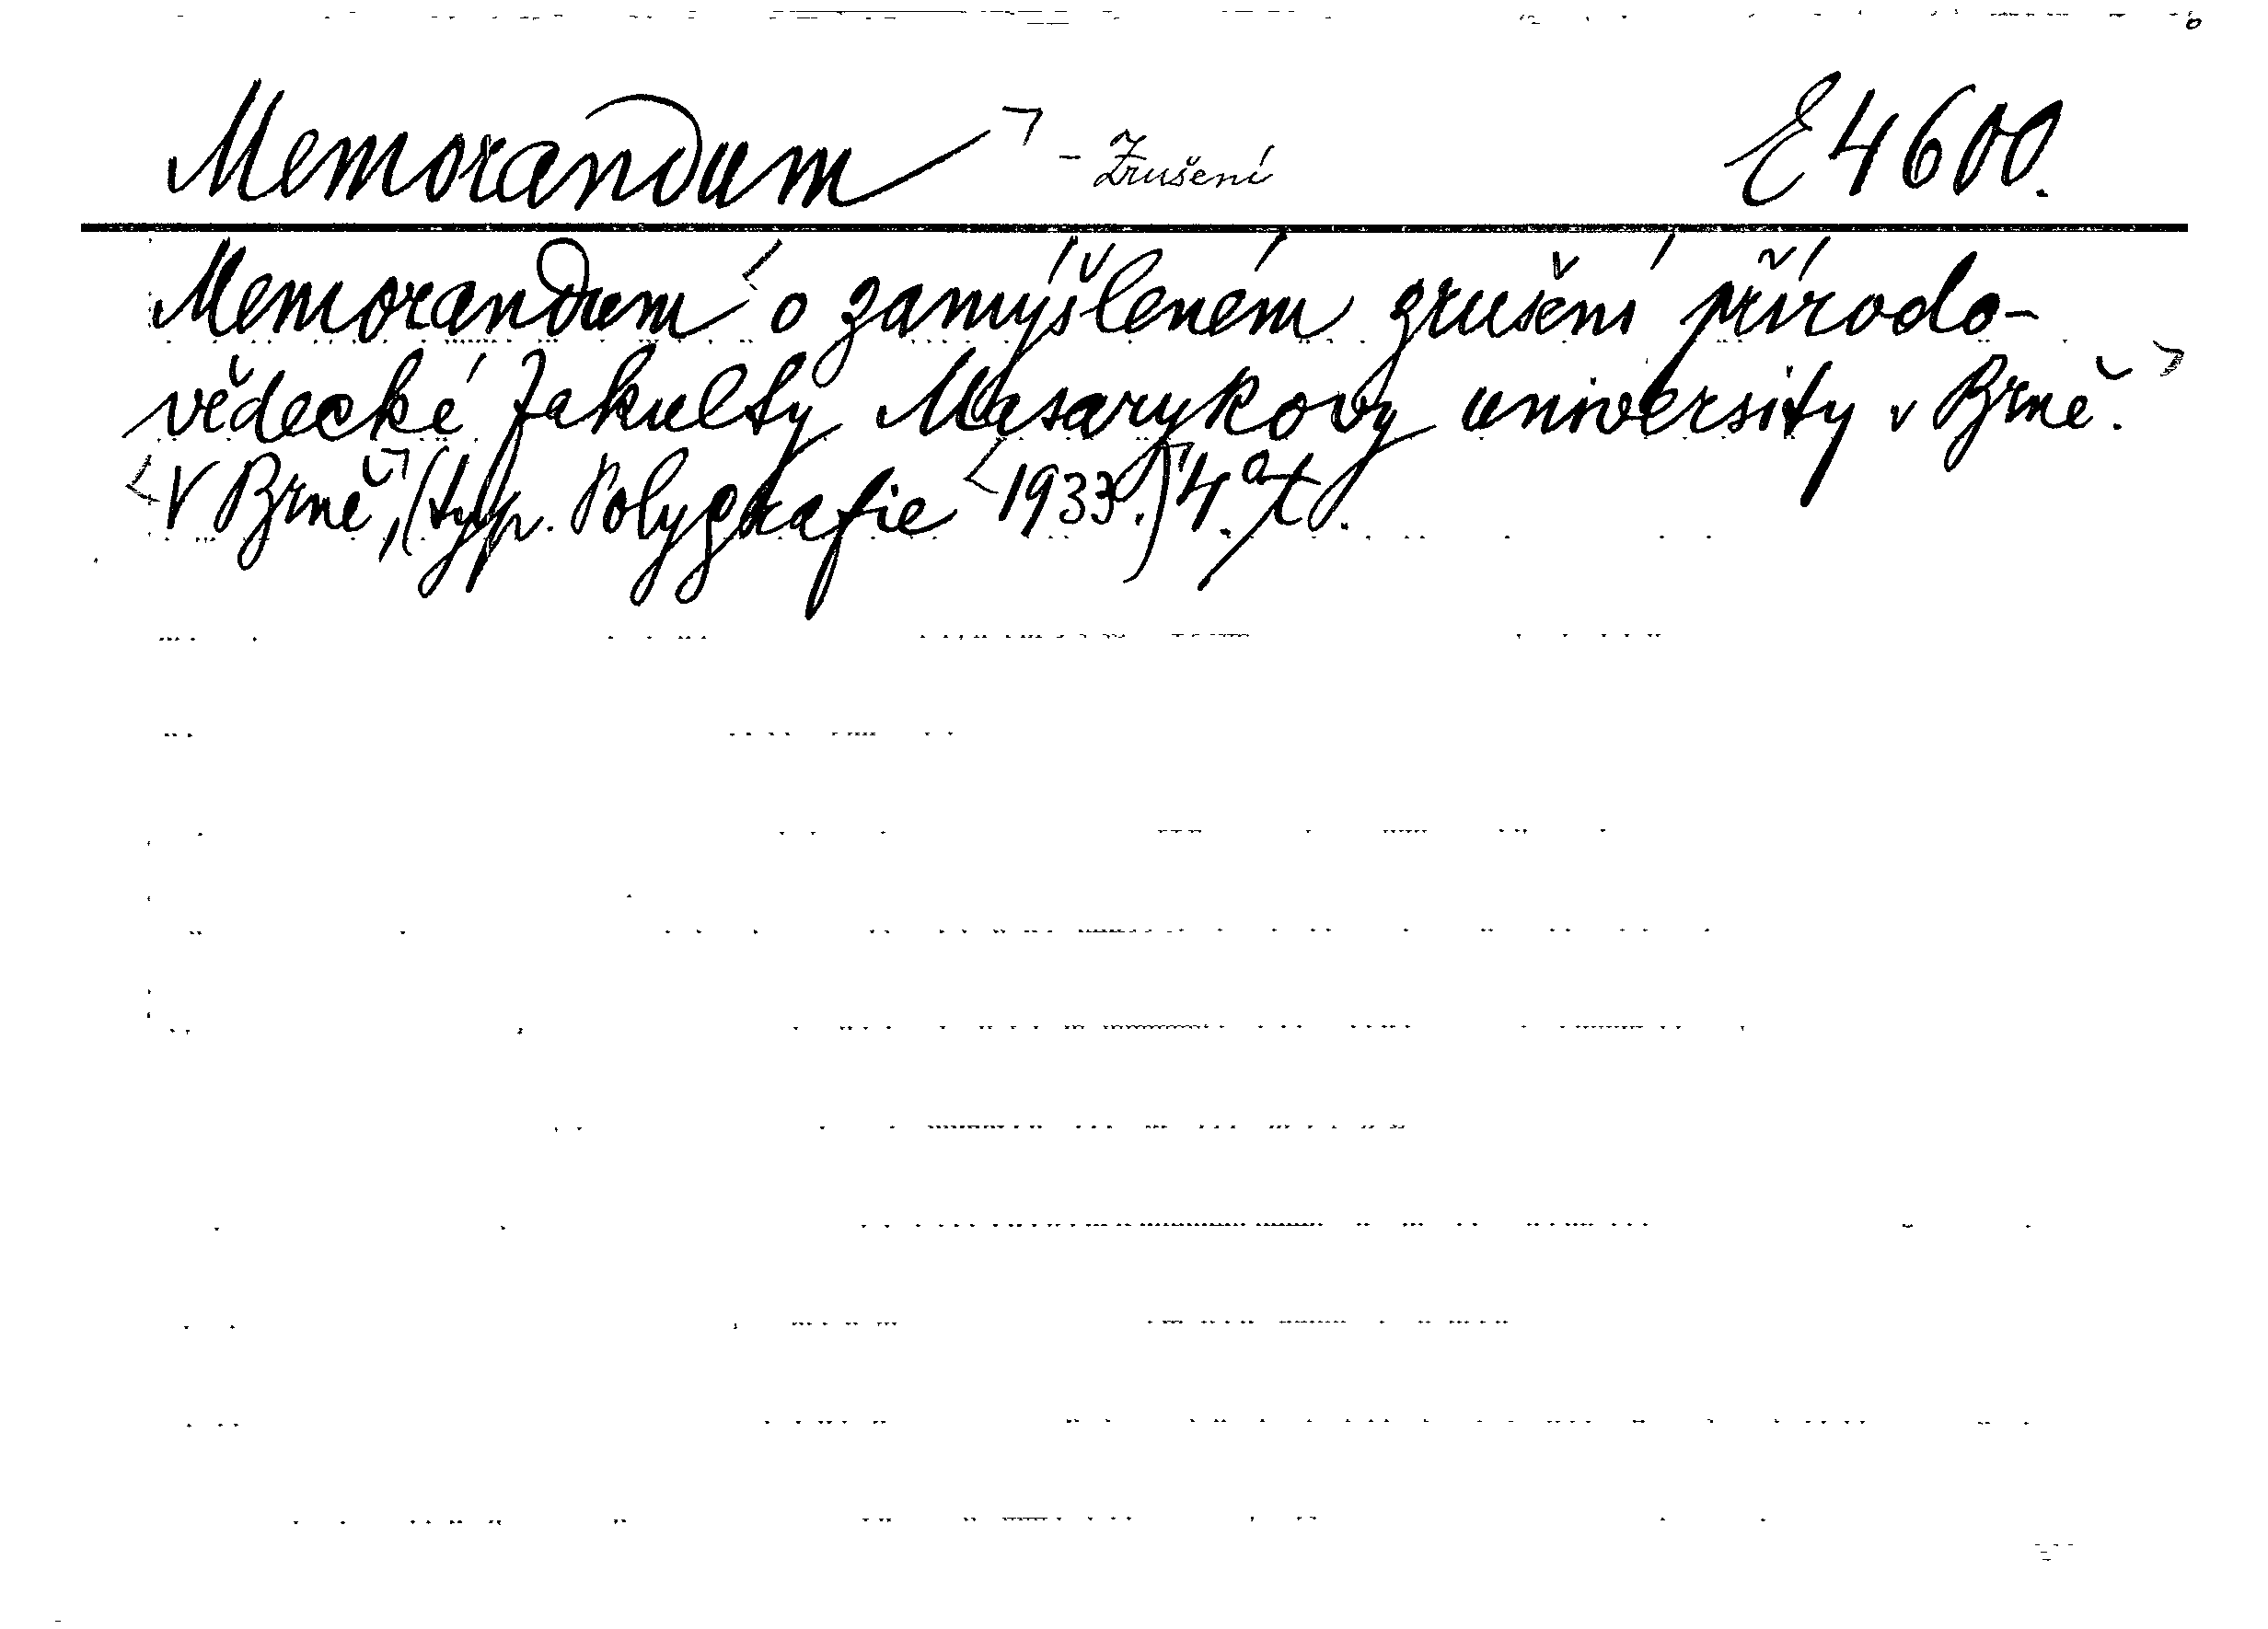 Memorandum - Zrušení E 4600.
Memorandum o zamýšleném zrušení přírodo-
vědecké fakulty Masarykovy university v Brně.
V Brně, (typ. Polygrafie 1933.) 4.°